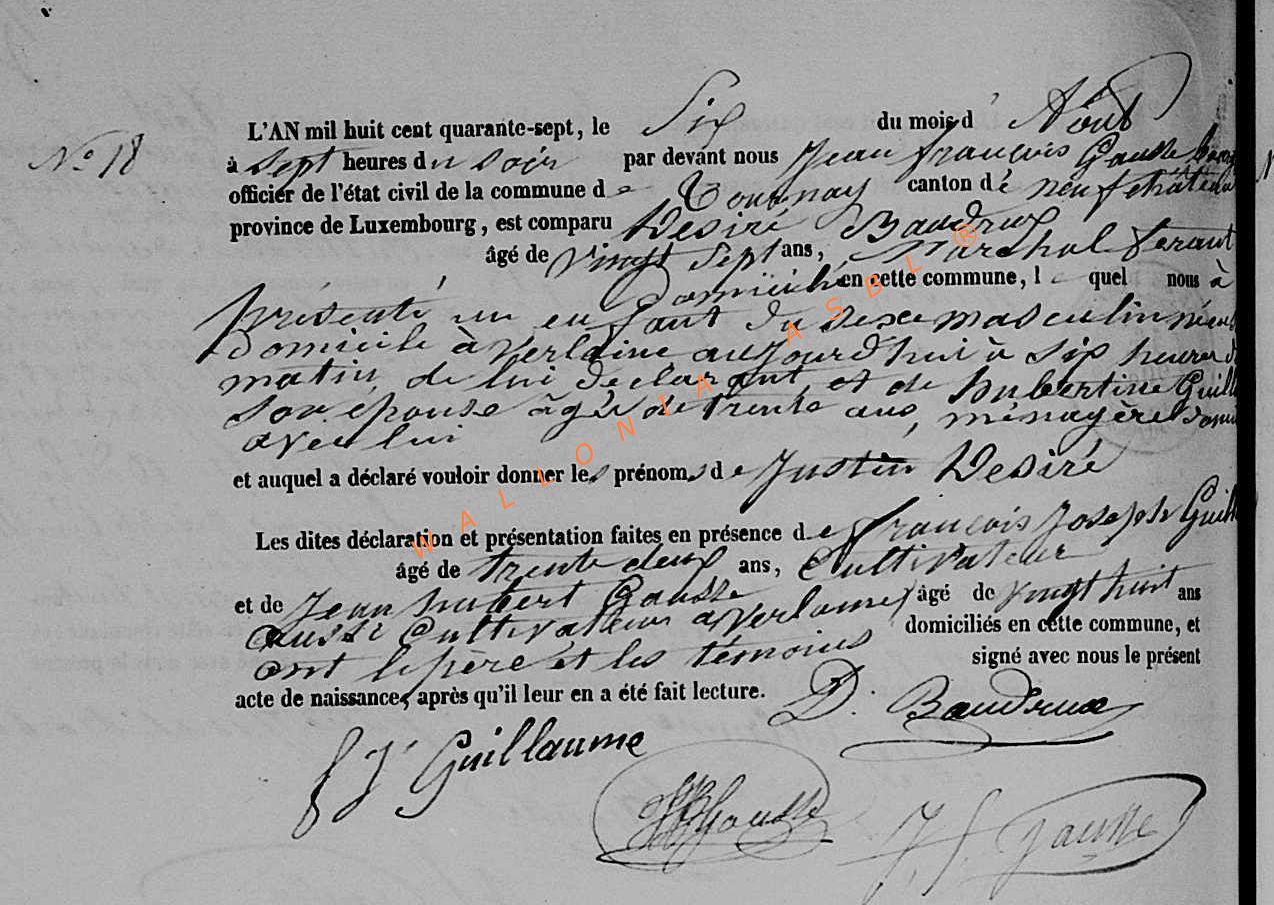 L'AN mil huit cent quarante-sept, le Six du mois d' Août
N° 18
à Sept heures du Soir par devant nous Jean françois Gausse
officier de l'état civil de la commune de Tournay canton de neufchâteau
province de Luxembourg, est comparu Desiré Baudrux
âgé de vingt Sept ans, Marchal ferant
Domicilié en cette commune, lequel nous à
présenté un enfant du Sexe masculin né
domicile à Verlaine aujourd'hui à Six heures
matin, de lui declarant, et de hubertine Guill
Son epouse âgée de trente ans, ménagère
avec lui
et auquel a déclaré vouloir donner les prénoms de Justin Desiré
Les dites déclaration et présentation faites en présence de françois Joseph Guill
âgé de trente deux ans, Cultivateur
et de Jean hubert Gausse âgé de vingt huit ans
aussi Cultivateur a Verlaine domiciliés en cette commune, et
ont le père et les témoins signé avec nous le présent
acte de naissance, après qu'il leur en a été fait lecture.
D. Baudrux
f J Guillaume
JH Gausse
J f. Gausse
WALLONIA ASBL ®